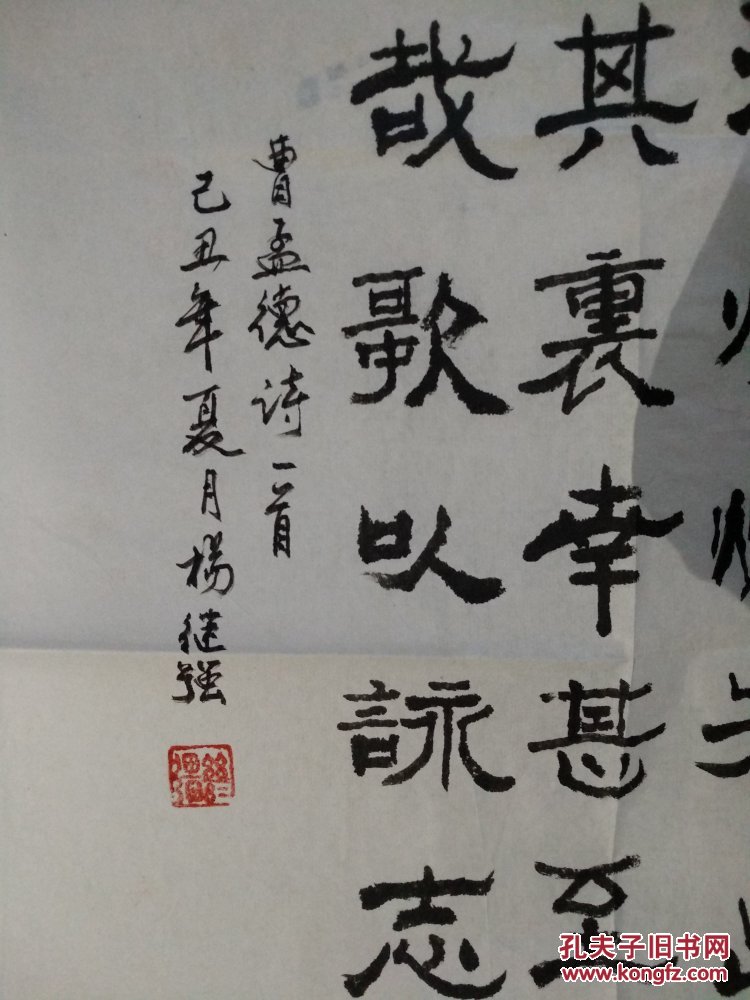 其裏幸甚至
哉歌以詠志
曹孟德诗一首
己丑年夏月楊继强
孔夫子旧书网
www.kongfz.com